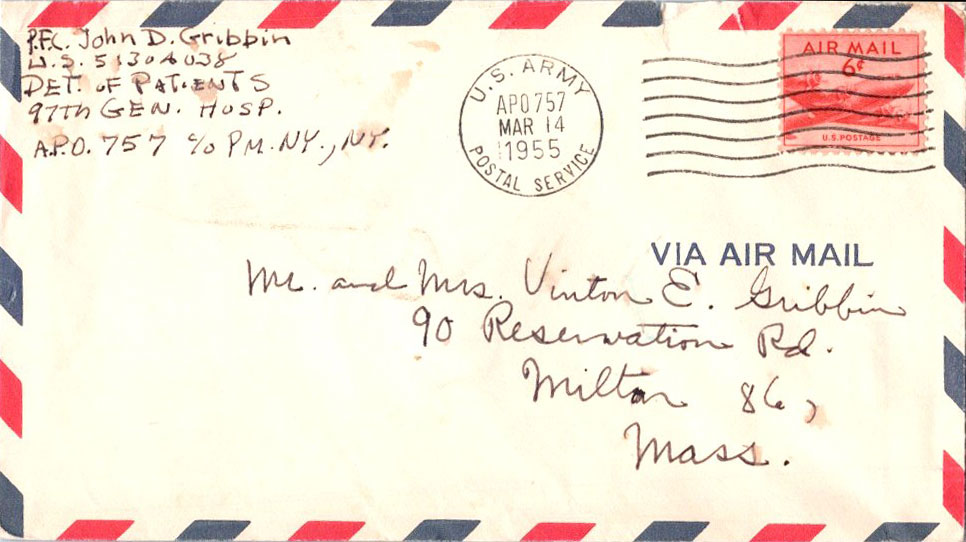 P.F.C. John D. Gribbin
U.S. 51304038
DET. OF PATIENTS
97TH GEN. HOSP.
A.P.O. 757 c/o P.M. NY., NY.
U.S. ARMY
APO 757
MAR 14
1955
POSTAL SERVICE
AIR MAIL
6¢
U.S. POSTAGE
VIA AIR MAIL
Mr. and Mrs. Vinton E. Gribbin
90 Reservation Rd.
Milton 86,
Mass.